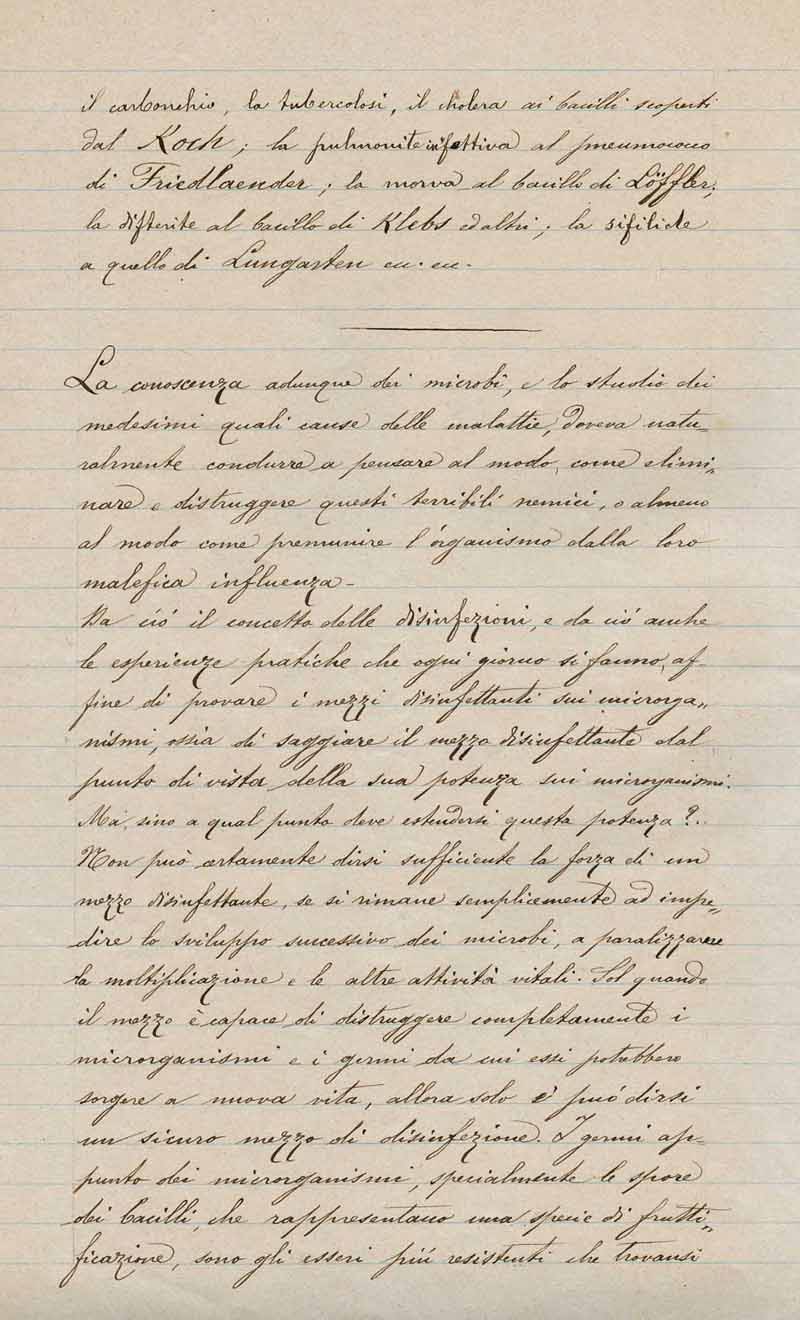 il carbonchio, la tubercolosi, il cholera ai bacilli scoperti
dal Koch; la pulmonite infettiva al pneumococco
di Friedlaender; la morva al bacillo di Löffler;
la difterite al bacillo di Klebs ed altri; la sifilide
a quello di Lungarten ecc. ecc.
La conoscenza adunque dei microbi, e lo studio dei
medesimi quali cause delle malattie, doveva natu=
ralmente condurre a pensare al modo, come elimi=
nare e distruggere questi terribili nemici, o almeno
al modo come premunire l'organismo dalla loro
malefica influenza -
Da ció il concetto delle disinfezioni, e da ció anche
le esperienze pratiche che ogni giorno si fanno, af=
fine di provare i mezzi disinfettanti sui microrga=
nismi, ossia di saggiare il mezzo disinfettante dal
punto di vista della sua potenza sui microrganismi.
Ma, sino a qual punto deve estendersi questa potenza?..
Non può certamente dirsi sufficiente la forza di un
mezzo disinfettante, se si rimane semplicemente ad impe=
dire lo sviluppo successivo dei microbi, a paralizzare
la moltiplicazione e le altre attività vitali. Sol quando
il mezzo è capace di distruggere completamente i
microrganismi e i germi da cui essi potrebbero
sorgere a nuova vita, allora solo è puó dirsi
un sicuro mezzo di disinfezione. I germi ap=
punto dei microrganismi, specialmente le spore
dei bacilli, che rappresentano una specie di frutti=
ficazione, sono gli esseri piú resistenti che trovansi